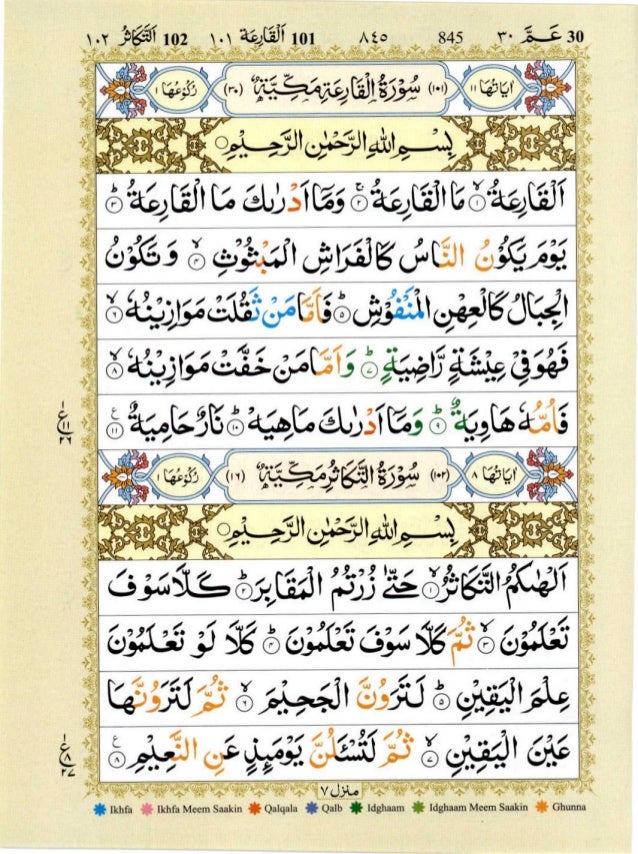 ١٠٢ اَلتَّكَاثُر 102 ١٠١ اَلْقَارِعَة 101 ٨٤٥ 845 ٣٠ عَمَّ 30
اٰيَاتُهَا ١١ (١٠١) سُوْرَةُ الْقَارِعَةِ مَكِّيَّةٌ (٣٠) رُكُوْعُهَا ١
بِسْمِ اللهِ الرَّحْمٰنِ الرَّحِيْمِ
اَلْقَارِعَةُ ۙ‏﴿۱﴾ مَا الْقَارِعَةُ ۚ‏﴿۲﴾ وَمَاۤ اَدْرٰىكَ مَا الْقَارِعَةُ ؕ‏﴿۳﴾
يَوْمَ يَكُوْنُ النَّاسُ كَالْفَرَاشِ الْمَبْثُوْثِ ۙ‏﴿۴﴾ وَ تَكُوْنُ
الْجِبَالُ كَالْعِهْنِ الْمَنْفُوْشِ ؕ‏﴿۵﴾ فَاَمَّا مَنْ ثَقُلَتْ مَوَازِيْنُهٗ ۙ‏﴿۶﴾
فَهُوَ فِىْ عِيْشَةٍ رَّاضِيَةٍ ؕ‏﴿۷﴾ وَاَمَّا مَنْ خَفَّتْ مَوَازِيْنُهٗ ۙ‏﴿۸﴾
فَاُمُّهٗ هَاوِيَةٌ ؕ‏﴿۹﴾ وَمَاۤ اَدْرٰىكَ مَاهِيَهْ ؕ‏﴿۱۰﴾ نَارٌ حَامِيَةٌ ﴿۱۱﴾
ع ١١ ٢٦
اٰيَاتُهَا ٨ (١٠٢) سُوْرَةُ التَّكَاثُرِ مَكِّيَّةٌ (١٦) رُكُوْعُهَا ١
بِسْمِ اللهِ الرَّحْمٰنِ الرَّحِيْمِ
اَلْهٰىكُمُ التَّكَاثُرُ ۙ‏﴿۱﴾ حَتّٰى زُرْتُمُ الْمَقَابِرَ ؕ‏﴿۲﴾ كَلَّا سَوْفَ
تَعْلَمُوْنَ ۙ‏﴿۳﴾ ثُمَّ كَلَّا سَوْفَ تَعْلَمُوْنَ ؕ‏﴿۴﴾ كَلَّا لَوْ تَعْلَمُوْنَ
عِلْمَ الْيَقِيْنِ ؕ‏﴿۵﴾ لَتَرَوُنَّ الْجَحِيْمَ ۙ‏﴿۶﴾ ثُمَّ لَتَرَوُنَّهَا
عَيْنَ الْيَقِيْنِ ۙ‏﴿۷﴾ ثُمَّ لَتُسْـَٔلُنَّ يَوْمَئِذٍ عَنِ النَّعِيْمِ ﴿۸﴾
ع ٨ ٢٧
منزل ٧
Ikhfa Ikhfa Meem Saakin Qalqala Qalb Idghaam Idghaam Meem Saakin Ghunna